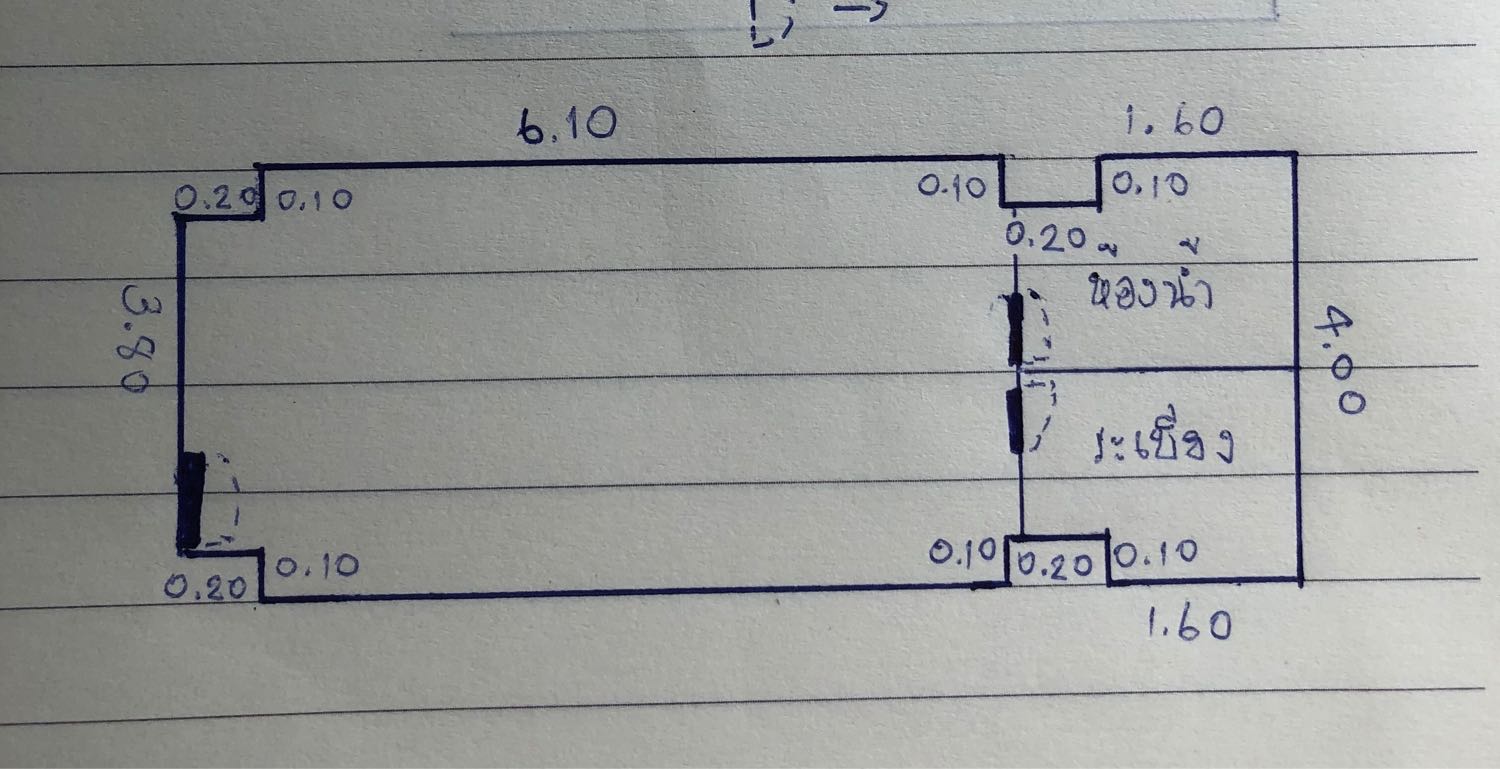 6.10
1.60
0.20 0.10
0.10
0.10
0.20
ห้องน้ำ
3.80
4.00
ระเบียง
0.20
0.10
0.10
0.20
0.10
1.60